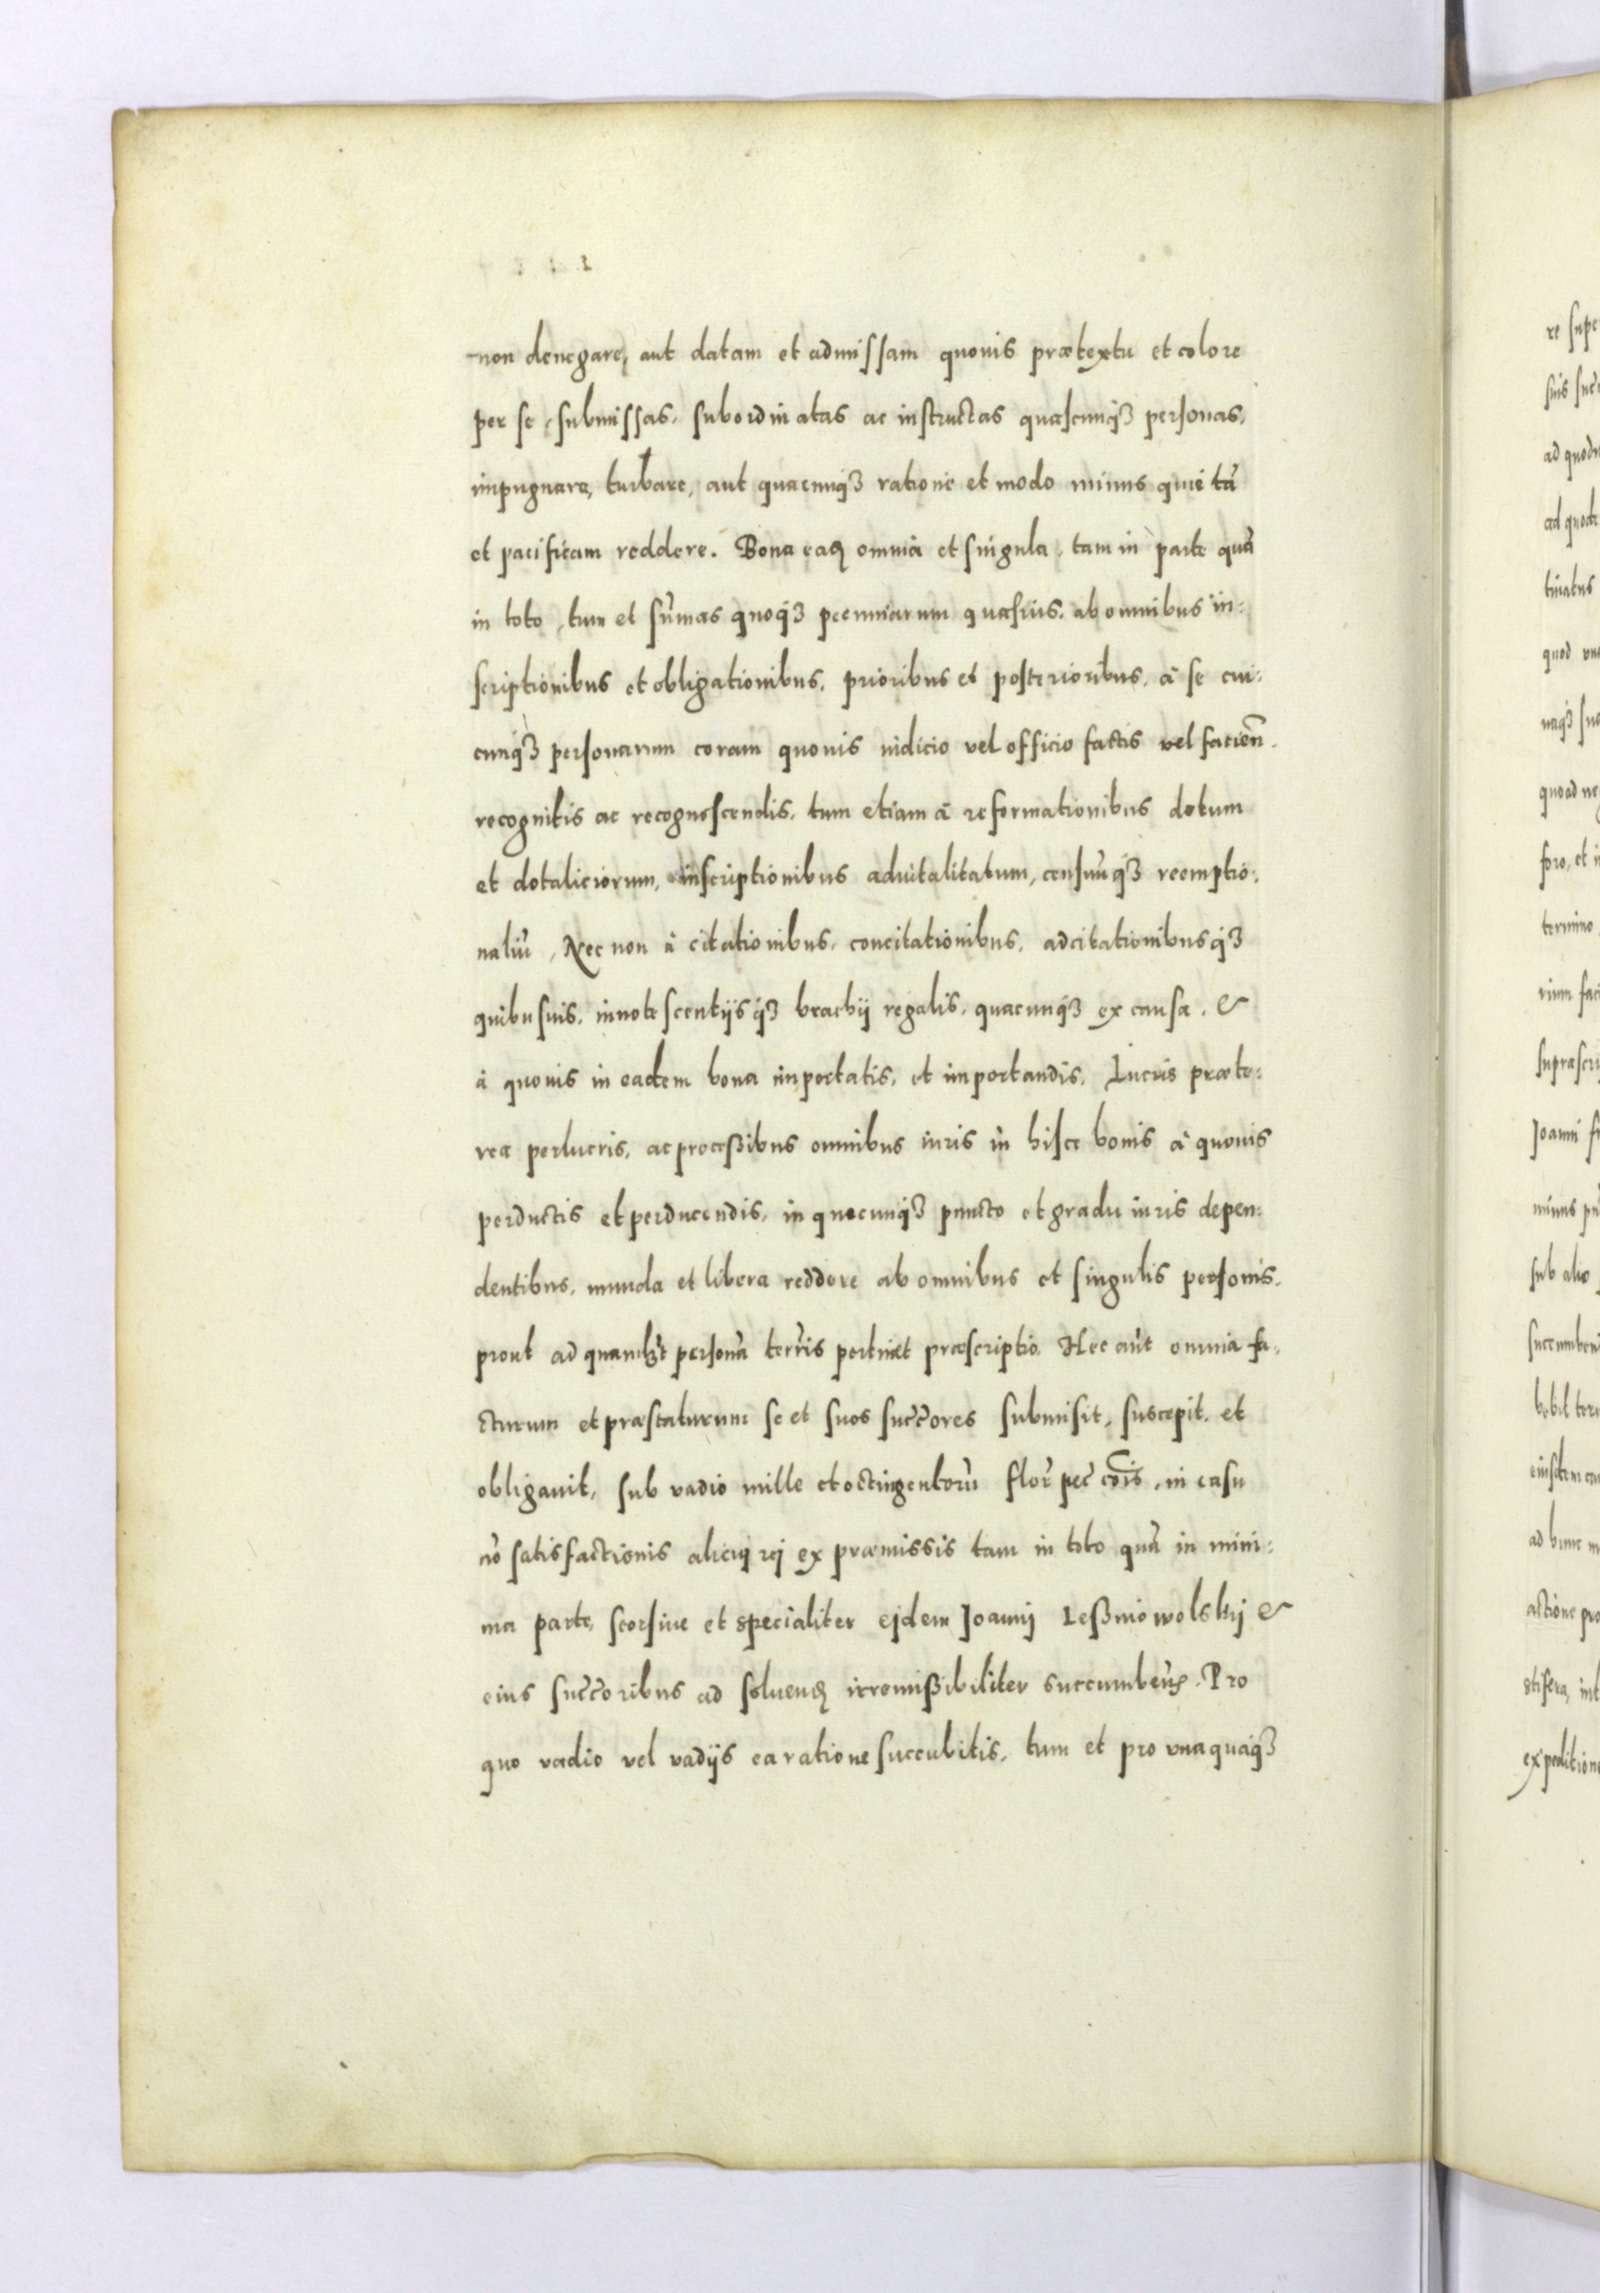 non denegare, aut datam et admissam quouis prætextu et colore
per se, submissas, subordinatas ac instructas quascunq3 personas,
impugnare, turbare, aut quacunq3 ratione et modo minus quietã
et pacificam reddere. Bona eaq omnia et singula, tam in parte quã
in toto, tum et sum̃as quoq3 pecuniarum quasuis, ab omnibus in:
scriptionibus et obligationibus, prioribus et posterioribus, à se cui:
cunq3 personarum coram quouis iudicio vel officio factis vel facien̄.
recognitis ac recognoscendis, tum etiam à reformationibus dotum
et dotaliciorum, inscriptionibus aduitalitatum, censuũq3 reemptio:
naliũ, Nec non à citationibus, concitationibus, adcitationibusq3
quibusuis, innotescentijsq3 brachij regalis, quacunq3 ex causa, &
à quouis in eadem bona importatis, et importandis, Lucris præte:
rea perlucris, ac proceßibus omnibus iuris in hisce bonis à quouis
perductis et perducendis, in quocunq3 puncto et gradu iuris depen:
dentibus, munda et libera reddere ab omnibus et singulis personis,
prout ad personã terr̃is pertinet præscriptio. Hec aũt omnia fa:
cturum et præstaturum se et suos succ̃ores submisit, suscepit, et
obligauit, sub vadio mille et octingentorũ flor̃ pec̃ co͞is, in casu
nõ satisfactionis alicuj rej ex præmissis tam in toto quã in mini:
ma parte, seorsiue et specialiter ejdem Joannj Leßniowolskij &
eius succ̃oribus ad soluenq irremißibiliter succumbeñ. Pro
quo vadio vel vadijs ea ratione succubitis, tum et pro vnaquaq3
re supe
suis suc
tinatus
quod vn
quoad ne
foro, et i
termino
rium faci
suprascri
Joanni fi
sub alio
succumben
eiusdem
ad hunc
actione pro
expeditione